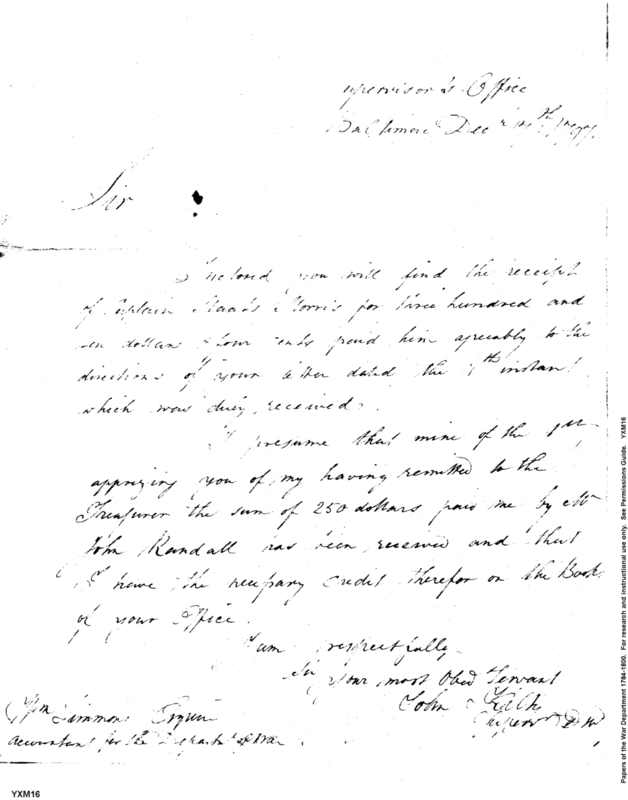 upervisor's Office
Baltimore Dec
Sir
Inclosed you will find the receipt
of Captain Staats Morris for three hundred and
ten dollars & four cents paid him agreeably to the
directions of your letter dated the th instant
which was duly received.
I presume that mine of the 1st
apprizing you of my having remitted to the
Treasurer the sum of 250 dollars paid me by Mr
John Randall has been received and that
I have the necessary credit therefor on the Books
of your Office.
I am respectfully
Sir Your most Obed Servant
John
Wm Simmons Esquire
Accountant for the Departmt of War.
YXM16
Papers of the War Department 1784-1800. For research and instructional use only. See Permissions Guide. YXM16